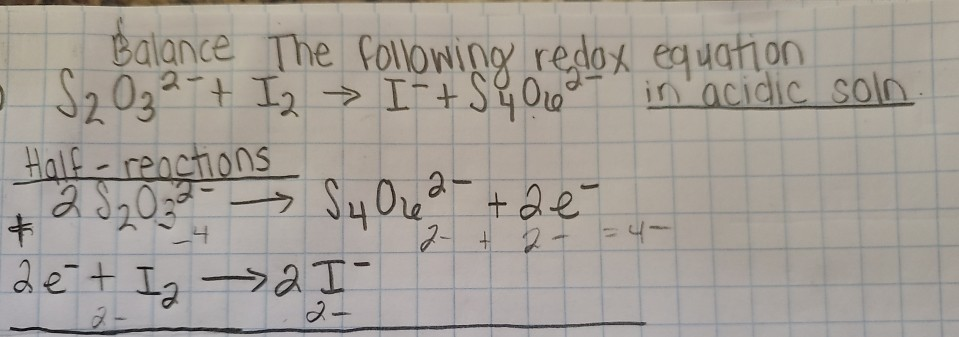 Balance The following redox equation
S₂O₃²⁻ + I₂ → I⁻ + S₄O₆²⁻ in acidic soln.
Half-reactions
2 S₂O₃²⁻ → S₄O₆²⁻ + 2e⁻
+ -4 2- + 2- = 4-
2e⁻ + I₂ → 2 I⁻
2- 2-